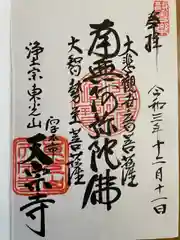 奉拝
令和三年十二月十一日
大悲観世音菩薩
南無阿弥陀佛
大智勢至菩薩
浄土宗東光山
天宗寺